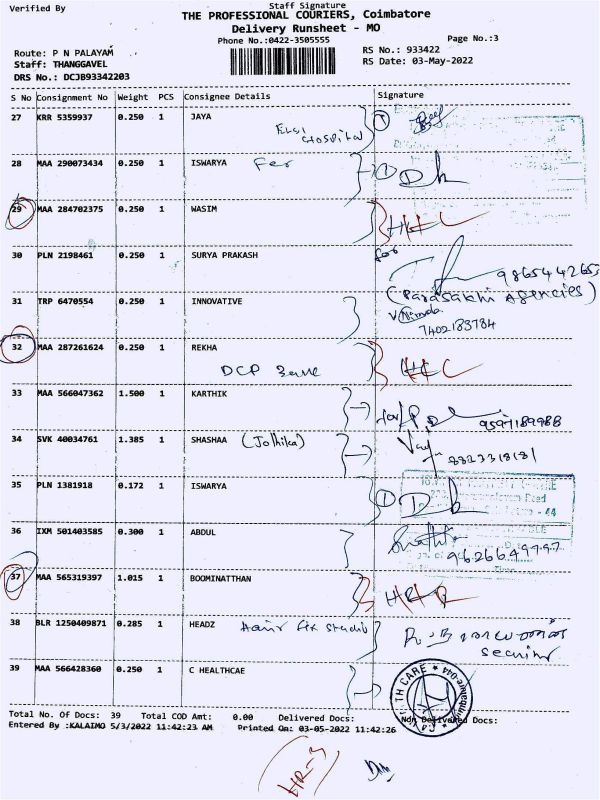 Verified By
Staff Signature
THE PROFESSIONAL COURIERS, Coimbatore
Delivery Runsheet - MO
Phone No.:0422-3505555
Page No.:3
Route: P N PALAYAM
RS No.: 933422
Staff: THANGGAVEL
RS Date: 03-May-2022
DRS No.: DCJB93342203
S No Consignment No Weight PCS Consignee Details Signature
27 KRR 5359937 0.250 1 JAYA
Hospital
28 MAA 290073434 0.250 1 ISWARYA
29 MAA 284702375 0.250 1 WASIM
30 PLN 2198461 0.250 1 SURYA PRAKASH for
9865442652
(Parasakhi Agencies)
31 TRP 6470554 0.250 1 INNOVATIVE
7402183784
32 MAA 287261624 0.250 1 REKHA
DCP Bank
33 MAA 566047362 1.500 1 KARTHIK
9597189988
34 SVK 40034761 1.385 1 SHASHAA (Jothika)
35 PLN 1381918 0.172 1 ISWARYA
36 IXM 501403585 0.300 1 ABDUL
9626649797
37 MAA 565319397 1.015 1 BOOMINATTHAN
38 BLR 1250409871 0.285 1 HEADZ Hair fix studio
39 MAA 566428360 0.250 1 C HEALTHCAE
TH CARE
Total No. Of Docs: 39 Total COD Amt: 0.00 Delivered Docs: Non Delivered Docs:
Entered By :KALAIMO 5/3/2022 11:42:23 AM Printed On: 03-05-2022 11:42:26